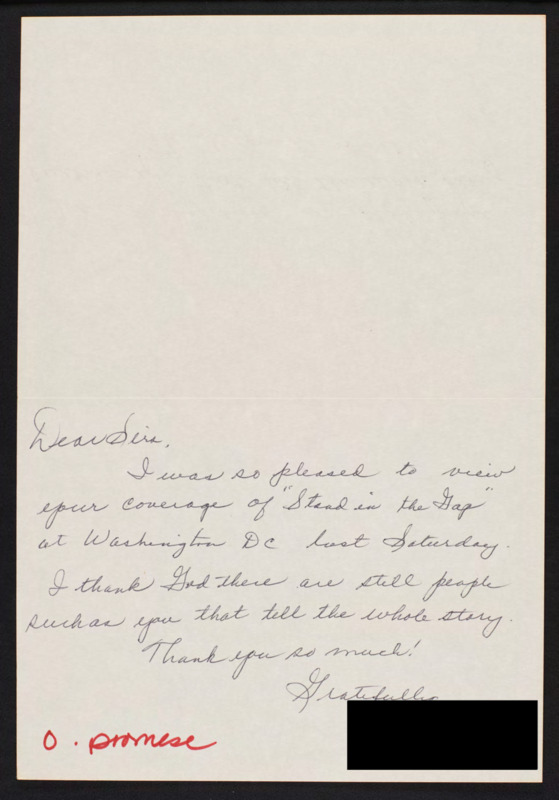 Dear Sirs,
I was so pleased to view
your coverage of "Stand in the Gap"
at Washington DC last Saturday.
I thank God there are still people
such as you that tell the whole story.
Thank you so much!
Gratefully
O. promese